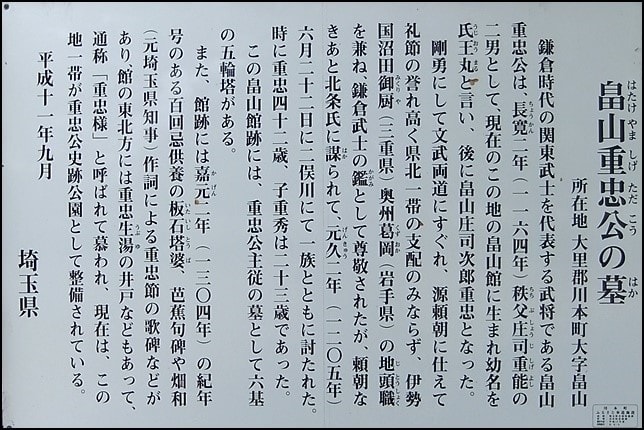 畠山重忠公の墓
所在地 大里郡川本町大字畠山
鎌倉時代の関東武士を代表する武将である畠山
重忠公は、長寛二年（一一六四年）秩父庄司重能の
二男として、現在のこの地の畠山館に生まれ幼名を
氏王丸と言い、後に畠山庄司次郎重忠となった。
剛勇にして文武両道にすぐれ、源頼朝に仕えて
礼節の誉れ高く県北一帯の支配のみならず、伊勢
国沼田御厨（三重県）奥州葛岡（岩手県）の地頭職
を兼ね、鎌倉武士の鑑として尊敬されたが、頼朝な
きあと北条氏に謀られて、元久二年（一二〇五年）
六月二十二日に二俣川にて一族とともに討たれた。
時に重忠四十二歳、子重秀は二十三歳であった。
この畠山館跡には、重忠公主従の墓として六基
の五輪塔がある。
また、館跡には嘉元二年（一三〇四年）の紀年
号のある百回忌供養の板石塔婆、芭蕉句碑や畑和
（元埼玉県知事）作詞による重忠節の歌碑などが
あり、館の東北方には重忠産湯の井戸などもあって、
通称「重忠様」と呼ばれて慕われ、現在は、この
地一帯が重忠公史跡公園として整備されている。
平成十一年九月
埼玉県